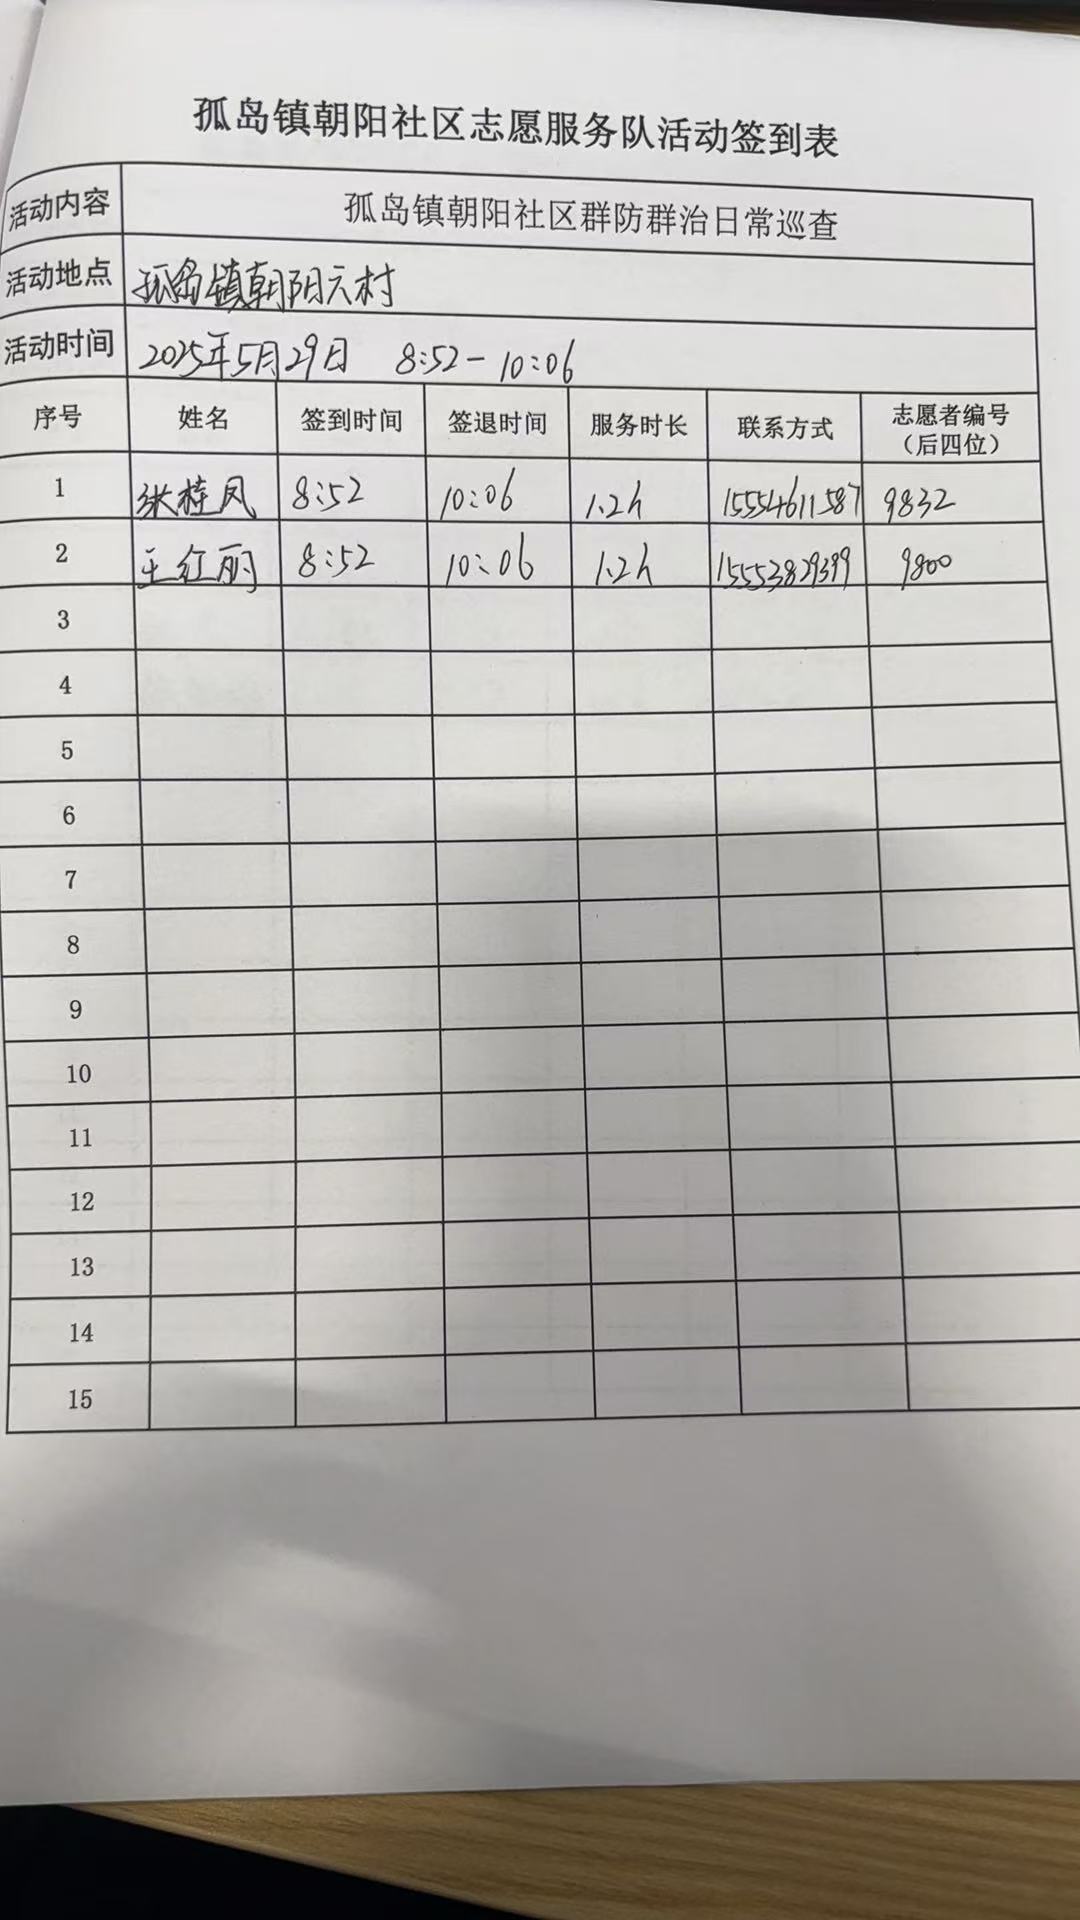 孤岛镇朝阳社区志愿服务队活动签到表
活动内容 孤岛镇朝阳社区群防群治日常巡查
活动地点 孤岛镇朝阳六村
活动时间 2025年5月29日 8:52-10:06
序号 姓名 签到时间 签退时间 服务时长 联系方式 志愿者编号（后四位）
1 张桂凤 8:52 10:06 1.2h 15554611587 9832
2 王红丽 8:52 10:06 1.2h 15553829399 9800
3
4
5
6
7
8
9
10
11
12
13
14
15